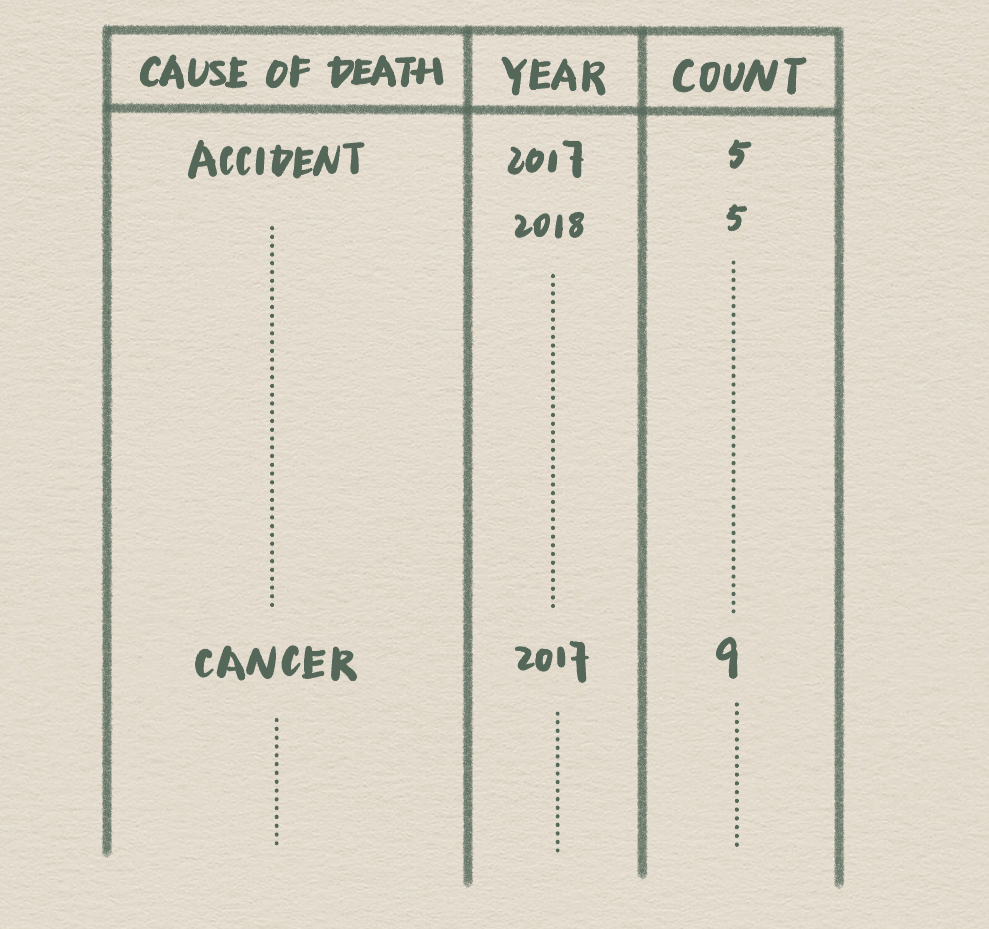 CAUSE OF DEATH YEAR COUNT
ACCIDENT 2017 5
2018 5
CANCER 2017 9